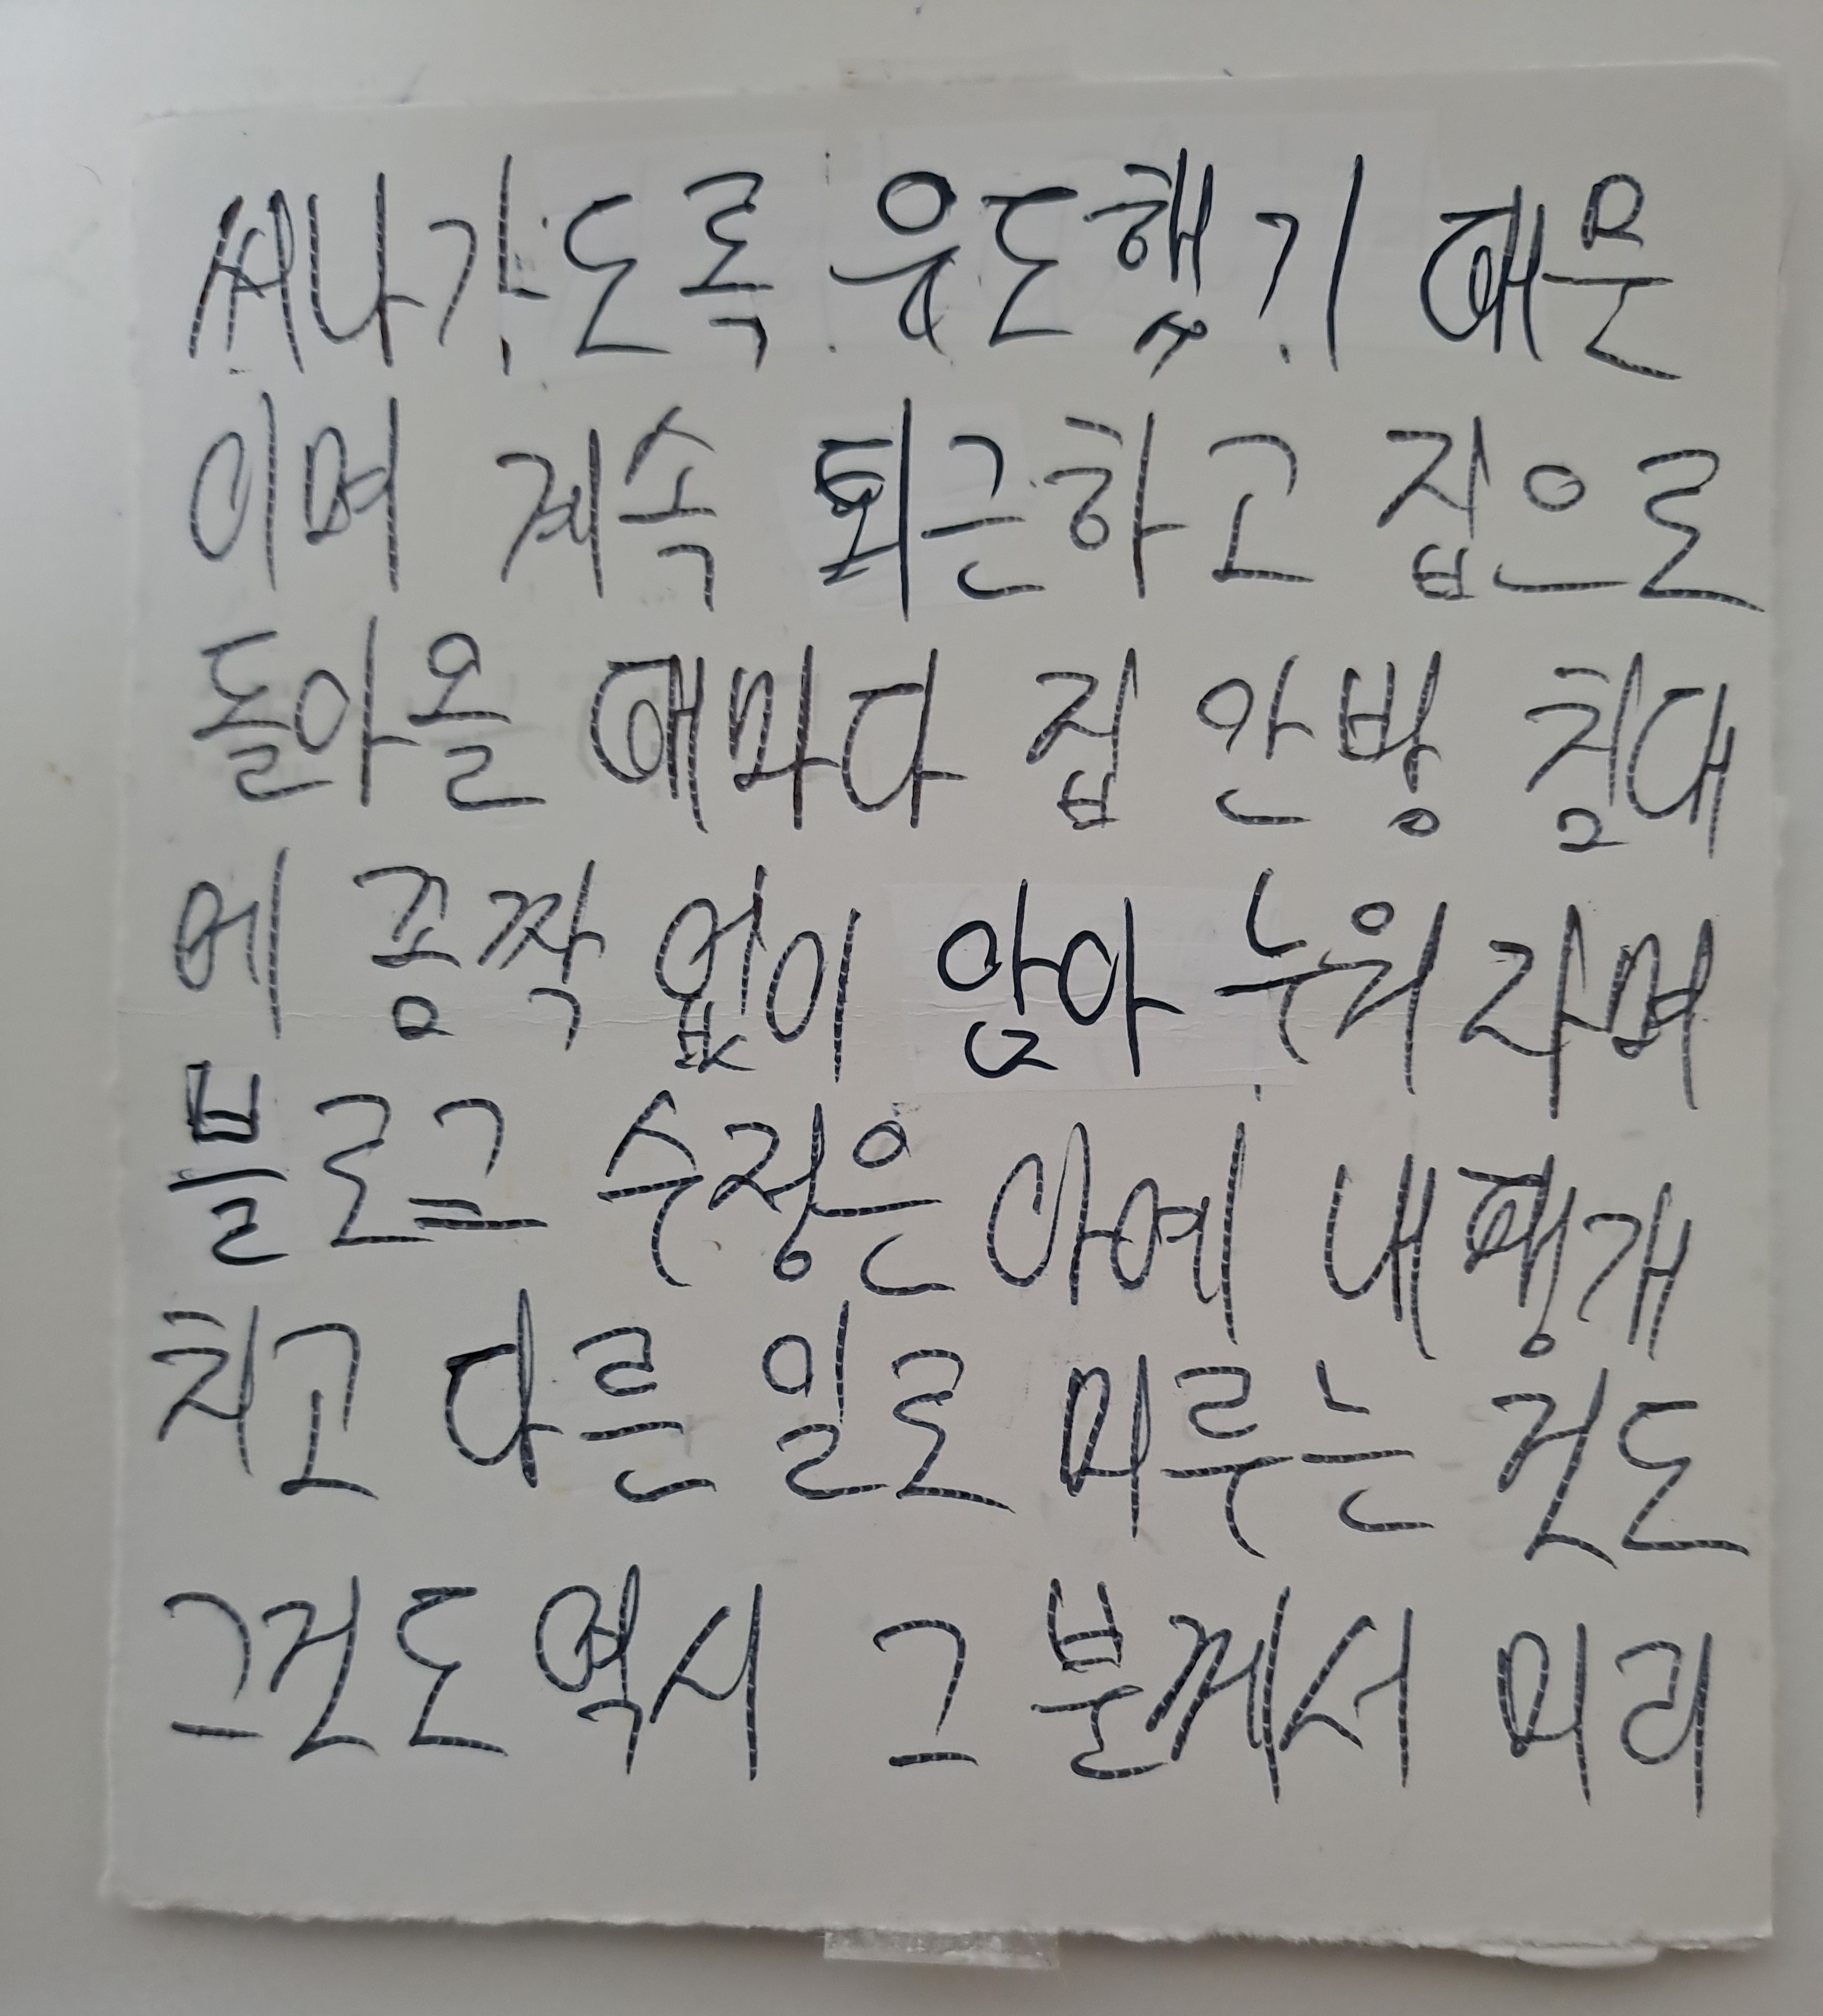 써나가도록 유도했기 때문
이며 계속 퇴근하고 집으로
돌아올 때마다 집 안방 침대
에 꼼짝 없이 앓아 누워라며
블로그 수정은 아예 내팽개
치고 다른 일로 미루는 것도
그것도 역시 그 분께서 미리